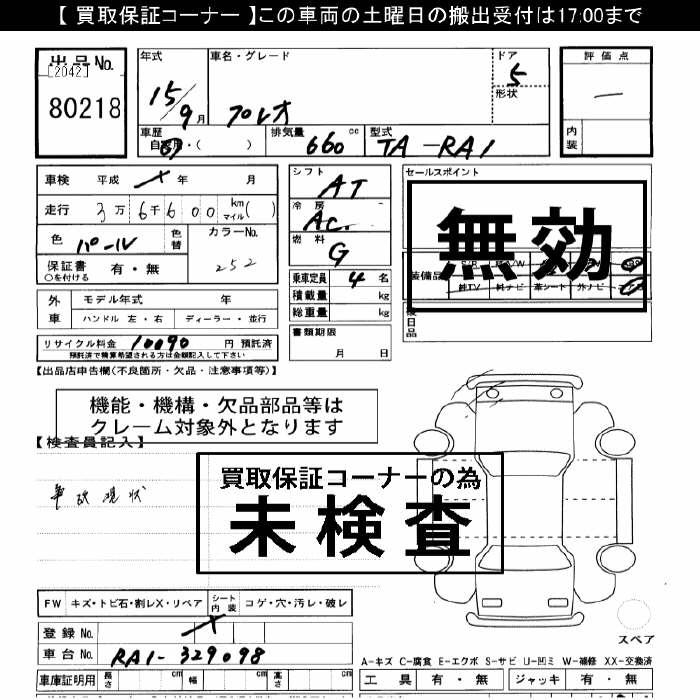 【 買取保証コーナー 】この車両の土曜日の搬出受付は17:00まで
出品No.
[2042]
80218
年式
15/9月
車名・グレード
プレオ
ドア
5
形状
評価点
—
内装
車歴
自家用・(　　)
排気量
660 cc
型式
TA-RA1
車検 平成 年 月
走行 3万6千600 km マイル( )
色 パール 色替
カラーNo.
252
保証書 有・無
○を付ける
シフト
AT
冷房
AC
燃料
G
乗車定員 4 名
積載量 kg
総重量 kg
書類期限
月 日
セールスポイント
無効
装備品
純TV 純ナビ 革シート 外ナビ
後日品
外車
モデル年式 年
ハンドル 左・右 ディーラー・並行
リサイクル料金 10090 円 預託済
預託済で精算希望される方は金額記入して下さい
【出品店申告欄(不良箇所・欠品・注意事項等)】
機能・機構・欠品部品等は
クレーム対象外となります
【検査員記入】
事故現状
買取保証コーナーの為
未検査
FW キズ・トビ石・割レX・リペア シート内装 コゲ・穴・汚レ・破レ
登録No.
車台No. RA1-329098
車庫証明用 長さ cm 幅 cm 高さ cm
スペア
A-キズ C-腐食 E-エクボ S-サビ U-凹ミ W-補修 XX-交換済
工具 有・無 ジャッキ 有・無